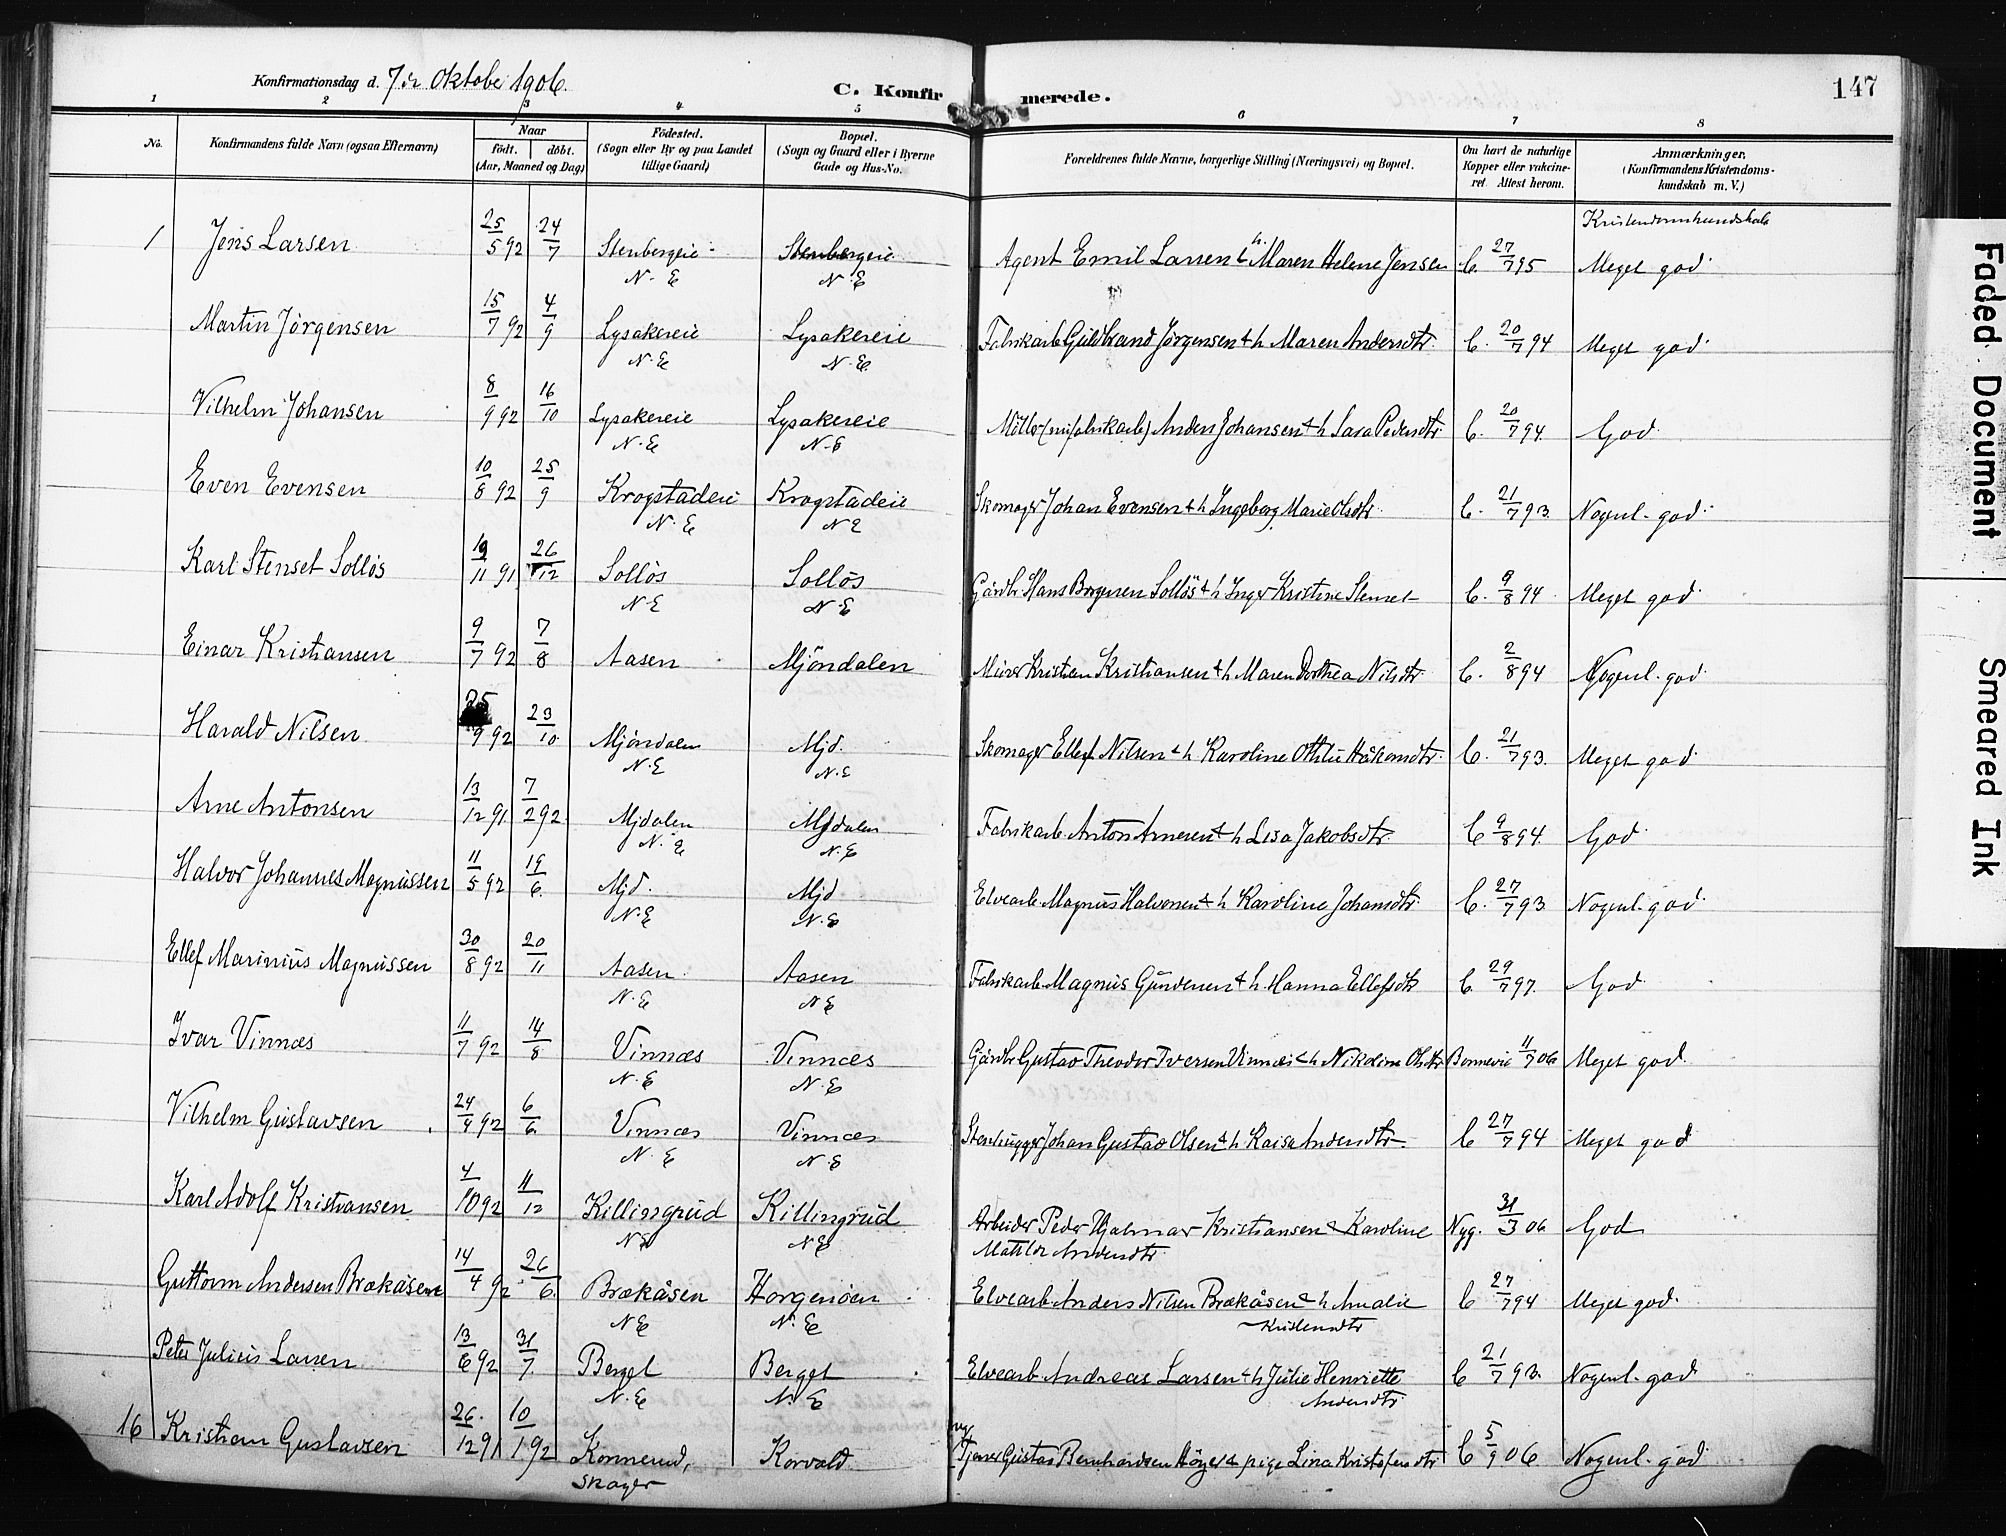 Konfirmationsdag d. 7de Oktober 1906.
C. Konfirmerede.
147
1 2 3 4 5 6 7 8
No. Konfirmandens fulde Navn (ogsaa Efternavn) Naar født. døbt. (Aar, Maaned og Dag) Fødested. (Sogn eller By og paa Landet tillige Gaard) Bopæl. (Sogn og Gaard eller i Byerne Gade og Hus-No. Forældrenes fulde Navne, borgerlige Stilling (Næringsvei) og Bopæl. Om havt de naturlige Kopper eller vakcineret. Attest herom. Anmærkninger. (Konfirmandens Kristendomskundskab m. V.)
Kristendomskundskab
1 Jens Larsen 25/5 92 24/7 Stenbergeie N. E Stenbergeie N. E Agent Emil Larsen & h. Maren Helene Jensen C. 27/7 95 Meget god
Martin Jörgensen 15/7 92 4/9 Lysakereie N. E Lysakereie N. E. Fabrikarb Guldbrand Jörgensen & h Maren Andersdtr. C. 20/7 94 Meget god
Vilhelm Johansen 8/9 92 16/10 Lysakereie N. E Lysakereie N. E Anders Johansen & h Sara Pedersdtr C. 20/7 94. God
Even Evensen 10/8 92 25/9 Krogstadeie N. E Krogstadeie N E Skomager Johan Evensen & h Ingeborg Marie Olsdtr. C. 21/7 93. Nogenl. god
Karl Stenset Solløs 19/11 91 26/12 Solløs N E Solløs N. E Gårdbr Hans Borgersen Solløs & h Inger Kristine Stenset C. 9/8 94 Meget god
Einar Kristiansen 9/7 92 7/8 Aasen Mjöndalen Kristian Kristiansen & h Maren Dorthea Nilsdtr C. 2/8 94 Nogenl. god
Harald Nilsen 25/9 92 23/10 Mjöndalen N. E Mjd. N. E Skomager Ellef Nilsen & h Karoline Othilie Håkonsdtr. C. 21/7 93. Meget god
Arne Antonsen 13/12 91 7/2 92. Mjdalen N. E Mjdalen N. E Fabrikarb. Anton Arnesen & h Lisa Jakobsdtr. C 9/8 94. God
Halvor Johannes Magnussen 11/5 92 19/6. Mjd. N. E Mjd N. E Elvearb. Magnus Halvorsen & h Karoline Johansdtr C. 27/7 93 Nogenl. god
Ellef Marinius Magnussen 30/8 92 20/11 Aasen N. E Aasen N E Fabrikarb. Magnus Gundersen & h. Hanna Ellefsdtr C. 29/7 97. God
Ivar Vinnæs 11/7 92 14/8 Vinnæs N. E Vinnæs N. E Gårdbr Gustav Theodor Iversen Vinnæs & h Nikoline Olsdtr Bonnevie 11/7 06 Meget god.
Vilhelm Gustavsen 24/4 92 6/6. Vinnæs N. E Vinnæs N. E Stenhugger Johan Gustav Olsen & h Kaisa Andersdtr C 27/7 94 Meget god
Karl Adolf Kristiansen 4/10 92 11/12 Killingrud N E Killingrud N E Arbeider Peder Hjalmar Kristiansen & Karoline Matilde Andersdtr Nyg. 31/3 06 God
Guttorm Andersen Brækåsen 14/4 92 26/6. Brækåsen N E Horgenöen N. E Elvearb. Anders Nilsen Brækåsen & h Amalie Kristensdtr C 27/7 94 Meget god.
Peter Julius Larsen 13/6 92 31/7. Berget N. E Berget N. E Elvearb. Andreas Larsen & h Julie Henriette Andersdtr C 21/7 93. Nogenl. god
16 Kristian Gustavsen 26/12 91 10/1 92 Konnerud, Skoger Korvald Gustav Bernhardsen & pige Lina Kristofersdtr C 5/9 06 Nogenl. god
Faded Document
Smeared Ink